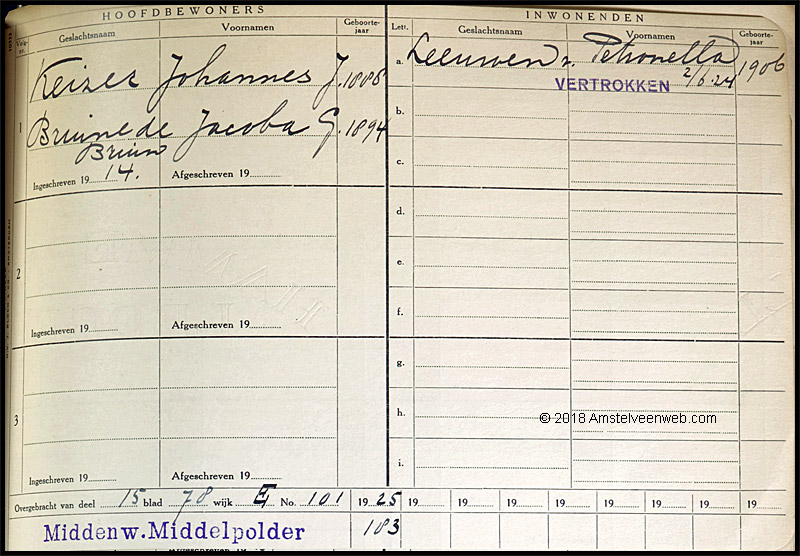 HOOFDBEWONERS
INWONENDEN
Volg-nr.
Geslachtsnaam
Voornamen
Geboorte-jaar
Lett.
Geslachtsnaam
Voornamen
Geboorte-jaar
1
Keizer Johannes J. 1886
a. Leeuwen v. Petronella 1906
VERTROKKEN 2/6.24
Bruine de Jacoba G. 1894
b.
Bruin
c.
Ingeschreven 19 14. Afgeschreven 19
d.
2
e.
f.
Ingeschreven 19 Afgeschreven 19
g.
3
h.
© 2018 Amstelveenweb.com
i.
Ingeschreven 19 Afgeschreven 19
Overgebracht van deel 15 blad 78 wijk E No. 101 19 25 19 19 19 19 19 19 19 19
Middenw. Middelpolder 183